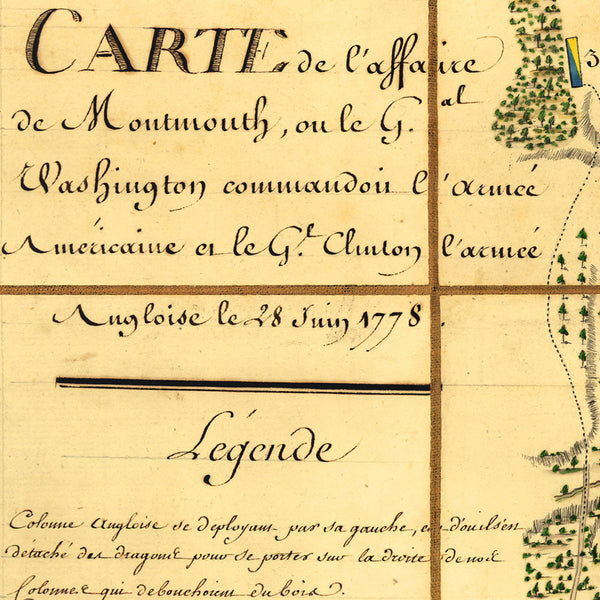 CARTE de l'affaire 3
de Montmouth, ou le G.al
Washington commandoit l'armeé
Américaine et le G.l Clinton l'armeé
Angloise le 28 Juin 1778.
Légende
Colonne Angloise se deployant par sa gauche, et d'où ils'en
détaché des dragons pour se porter sur la droite de nos
Colonnes qui debouchoient du bois.